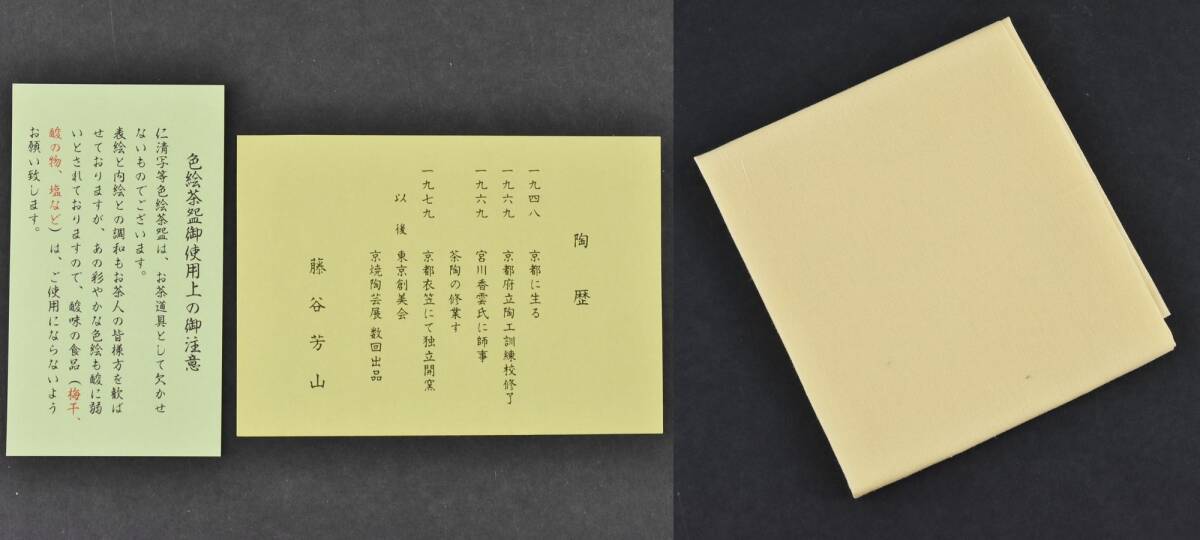 色絵茶盌御使用上の御注意
仁清写等色絵茶盌は、お茶道具として欠かせ
ないものでございます。
表絵と内絵との調和もお茶人の皆様方を歓ば
せておりますが、あの彩やかな色絵も酸に弱
いとされておりますので、酸味の食品（梅干、
酸の物、塩など）は、ご使用にならないよう
お願い致します。
陶歴
一九四八 京都に生る
一九六九 京都府立陶工訓練校修了
一九六九 宮川香雲氏に師事
茶陶の修業す
一九七九 京都衣笠にて独立開窯
以後 東京創美会
京焼陶芸展 数回出品
藤谷芳山